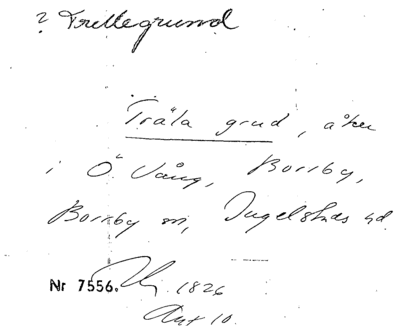 ? Trellegrund
Träla grud, åker
i Ö Vång, Borrby,
Borrby sn, Ingelstads hd.
Nr 7556. 1826
Akt 10.